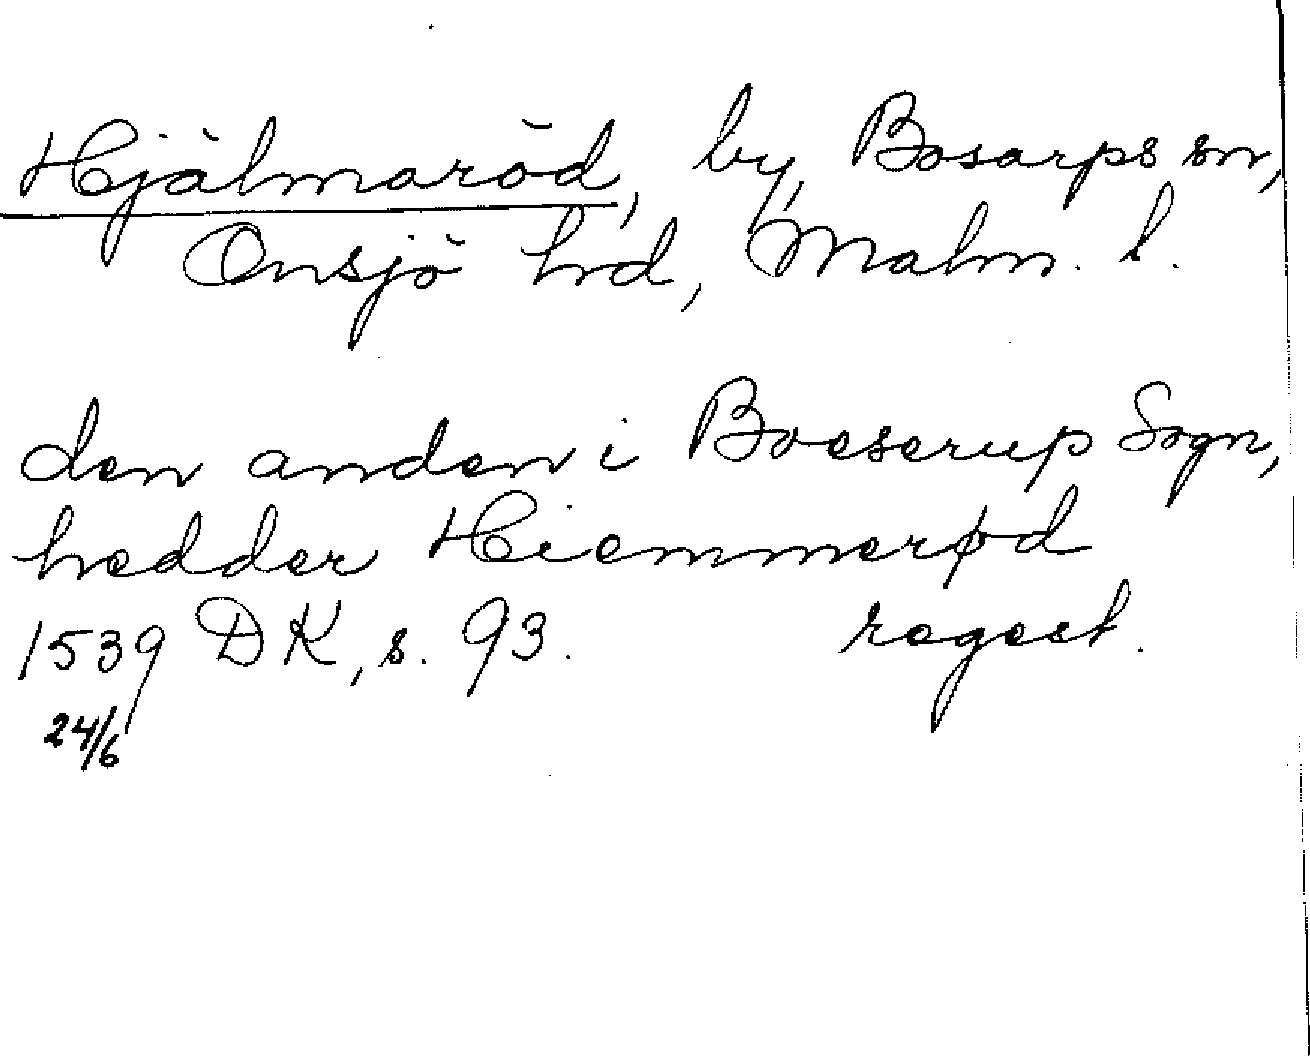 Hjälmaröd, by, Bosarps sn,
Onsjö hd, Malm. l.
den anden i Boeserup Sogn,
hedder Hiemmerød
1539 DK, s. 93. regest.
24/6